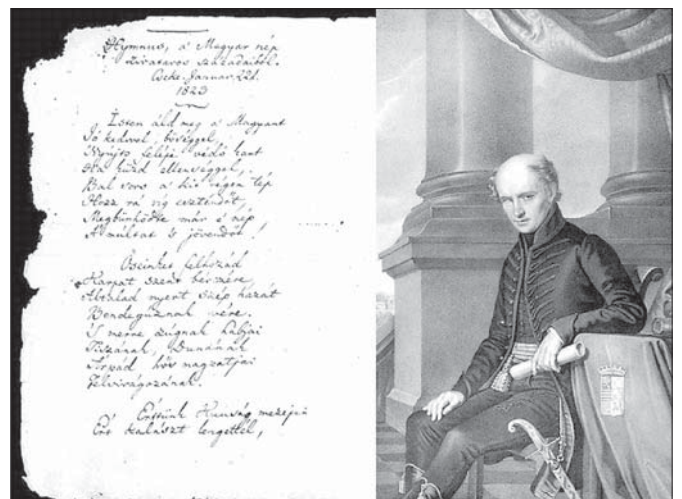 Hymnus, a' Magyar nép
zivataros századaiból.
Cseke. Januar. 22d.
1823
Isten áldd meg a' Magyart
Jó kedvvel, bőséggel,
Nyújts feléje védő kart
Ha küzd ellenséggel,
Bal sors a' kit régen tép
Hozz rá víg esztendőt,
Megbűnhődte már e' nép
A' múltat 's jövendőt!
Őseinket felhozád
Kárpát szent bérczére
Általad nyert szép hazát
Bendegúznak vére.
'S merre zúgnak habjai
Tiszának, Dunának
Árpád hős magzatjai
Felvirágozának.
Értünk Kunság mezején
Ért kalászt lengettél,